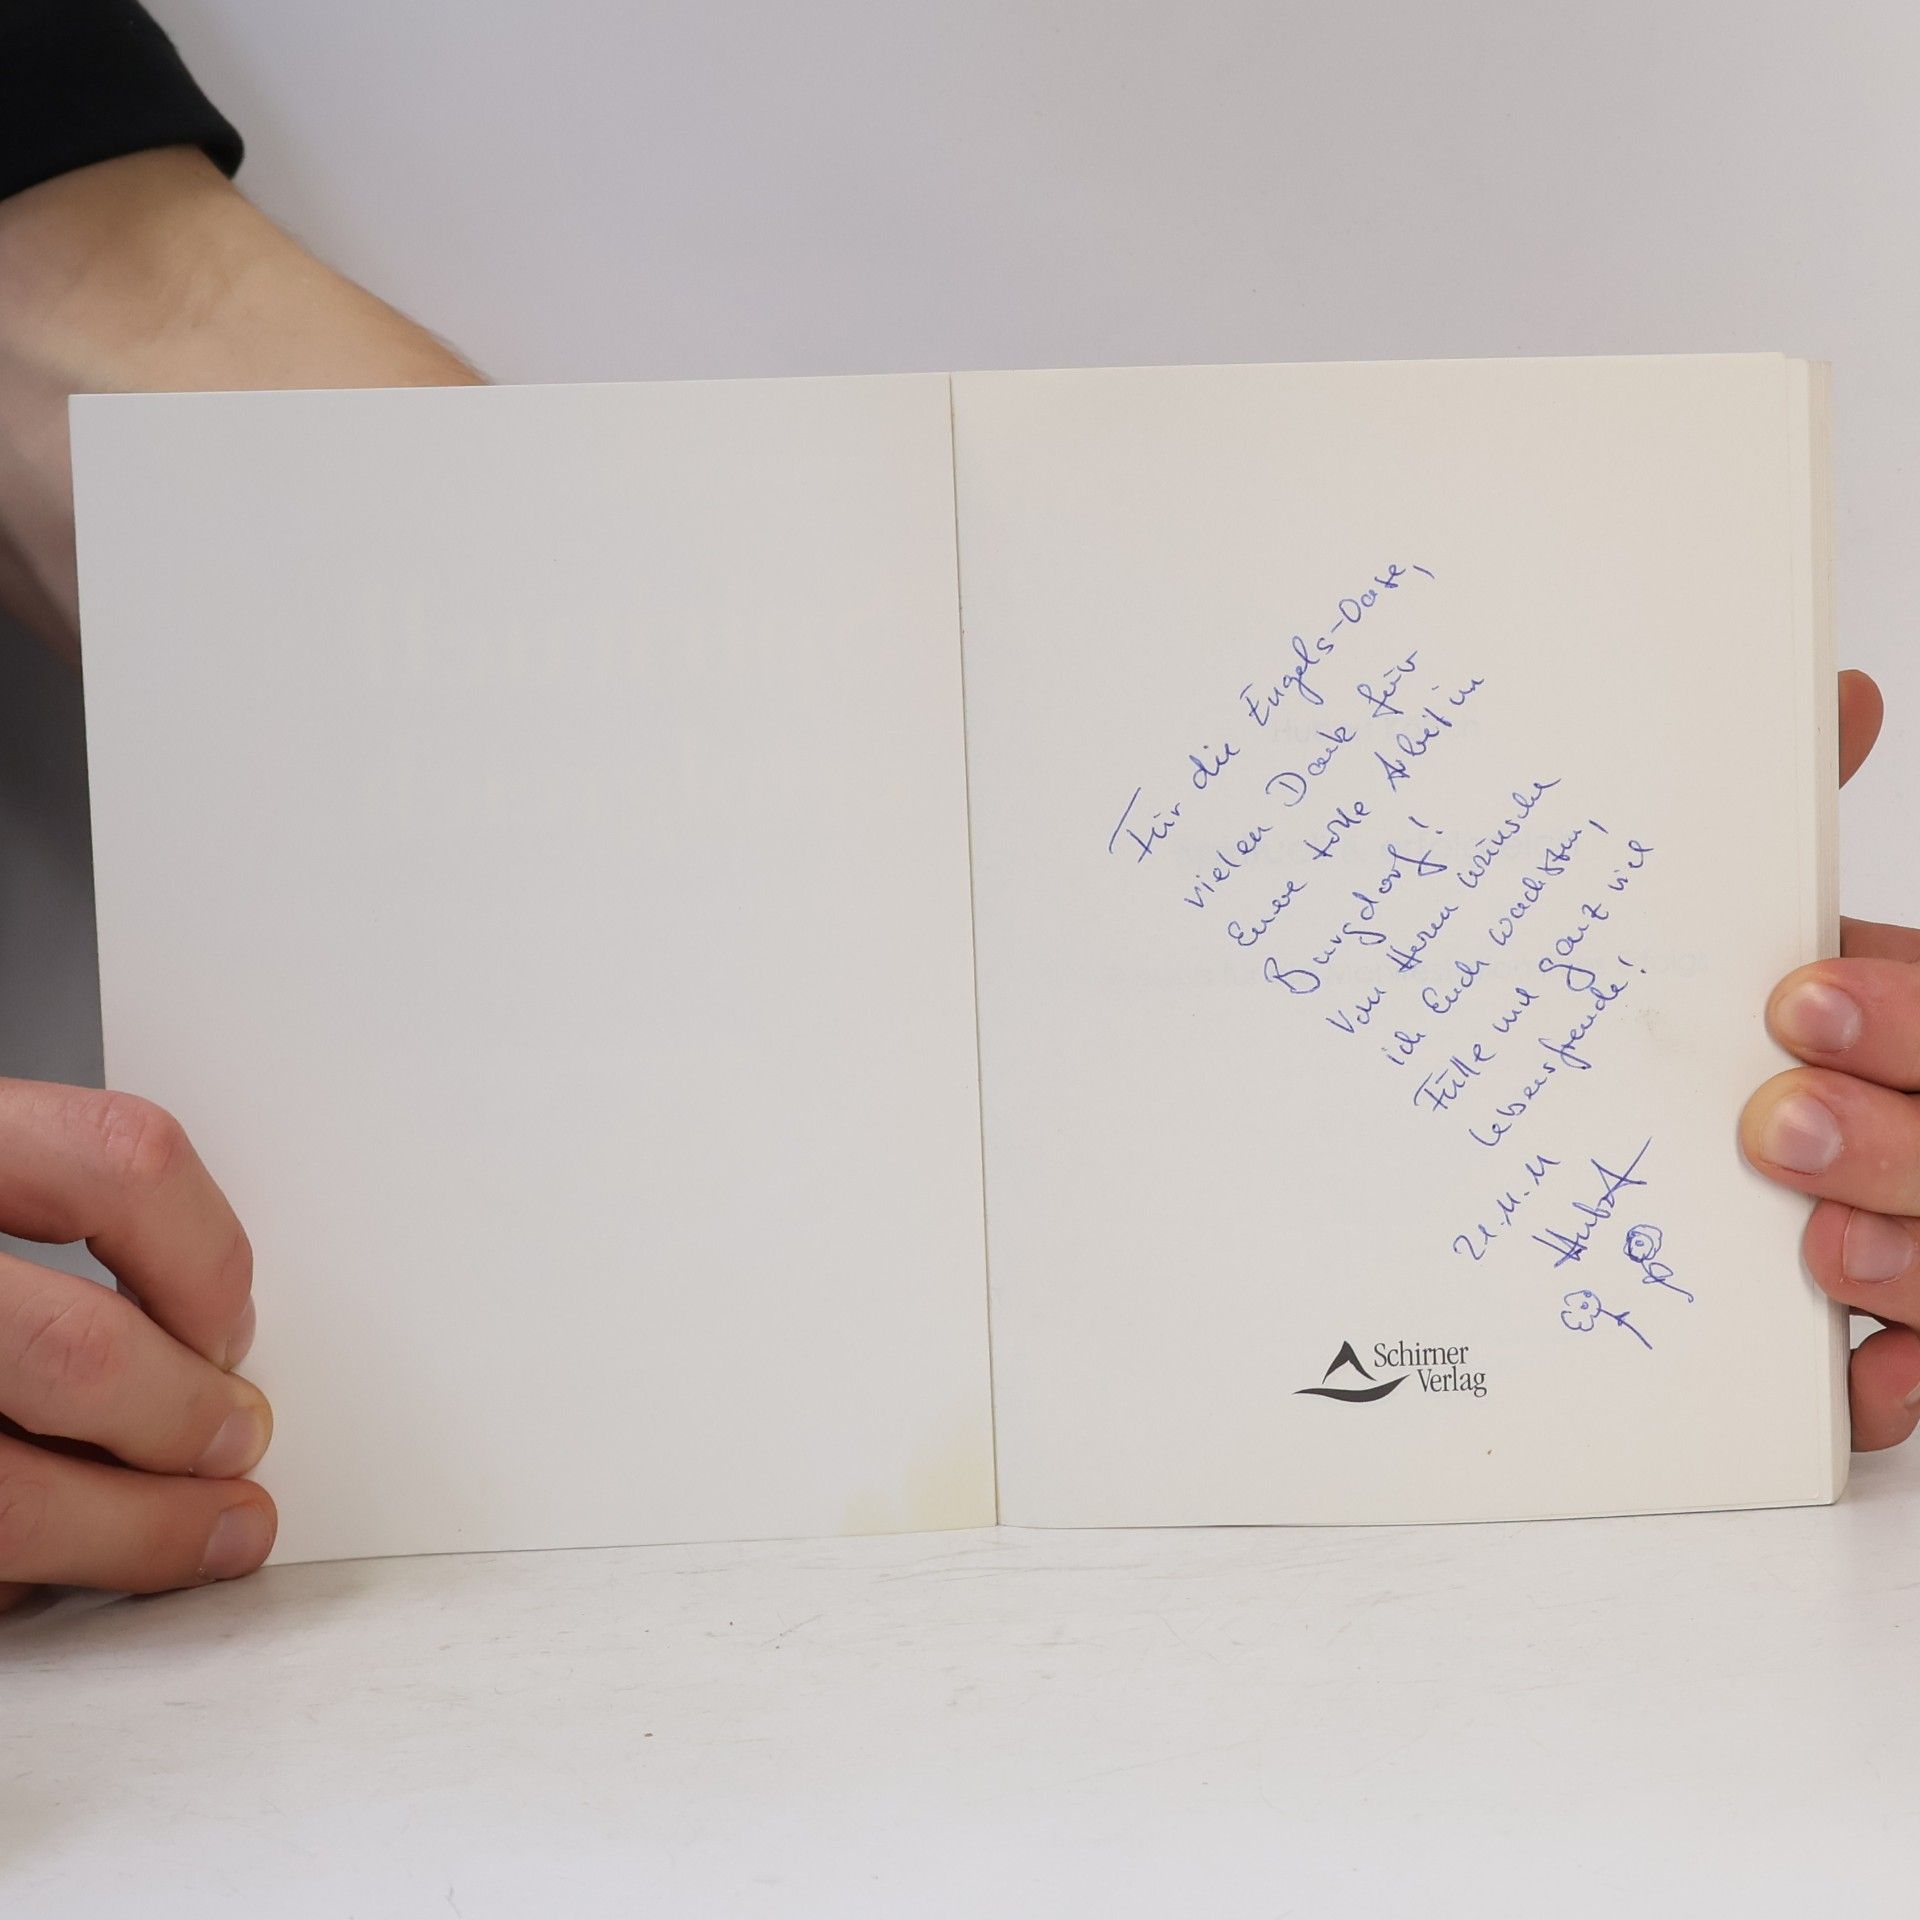 Für die Engels-Oase,
vielen Dank für
Eure tolle Arbeit in
Burgdorf!
Von Herzen wünsche
ich Euch Wachstum,
Fülle und ganz viel
Lebensfreude!
21.11.11
Schirner
Verlag